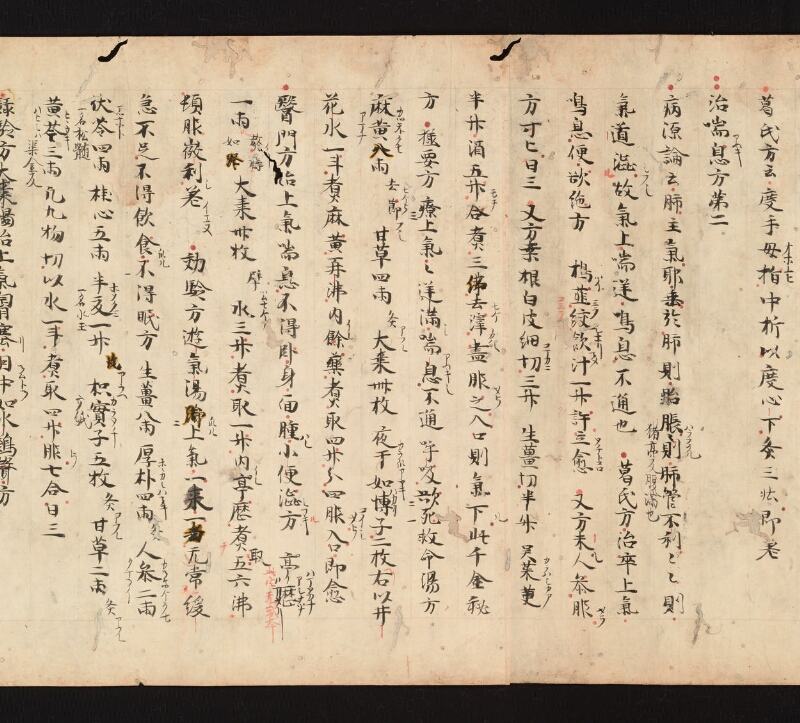 葛氏方云度手母指中折以度心下灸三壯即差
治喘息方第二
病源論云肺主氣耶乗於肺則脹脹則肺管不利々々則
氣道澁故氣上喘逆鳴息不通也 葛氏方治卒上氣
鳴息便欲絶方 搗韮絞飲汁一升許立愈 又方末人参服
方寸匕日三 又方桑根白皮細切三升 生薑切半升 呉茱萸
半升酒五升合煮三沸去滓盡服之入口則氣下此千金秘
方 極要方療上氣々逆満喘息不通呼吸欲死救命湯方
麻黄八両 去節 甘草四両 灸 大棗卅枚 夜干如博子二枚右以井
花水一斗煮麻黄再沸内餘藥煮取四升分四服入口即愈
醫門方治上氣喘息不得臥身面腫小便澁方 葶藶
一両 熬 大棗卅枚 擘 水三升煮取一升内葶藶煮五六沸
頓服微利差 効験方遊氣湯 上氣一来一 无常緩
急不足不得飲食不得眠方 生薑八両 厚朴四両 人参二両
伏苓四両 桂心五両 半夏一升 枳實子五枚 灸 甘草二両 灸
黄芩三両 凡九物切以水一斗煮取四升服七合日三
録験方大棗湯治上氣胸塞咽中如水鶏聲方